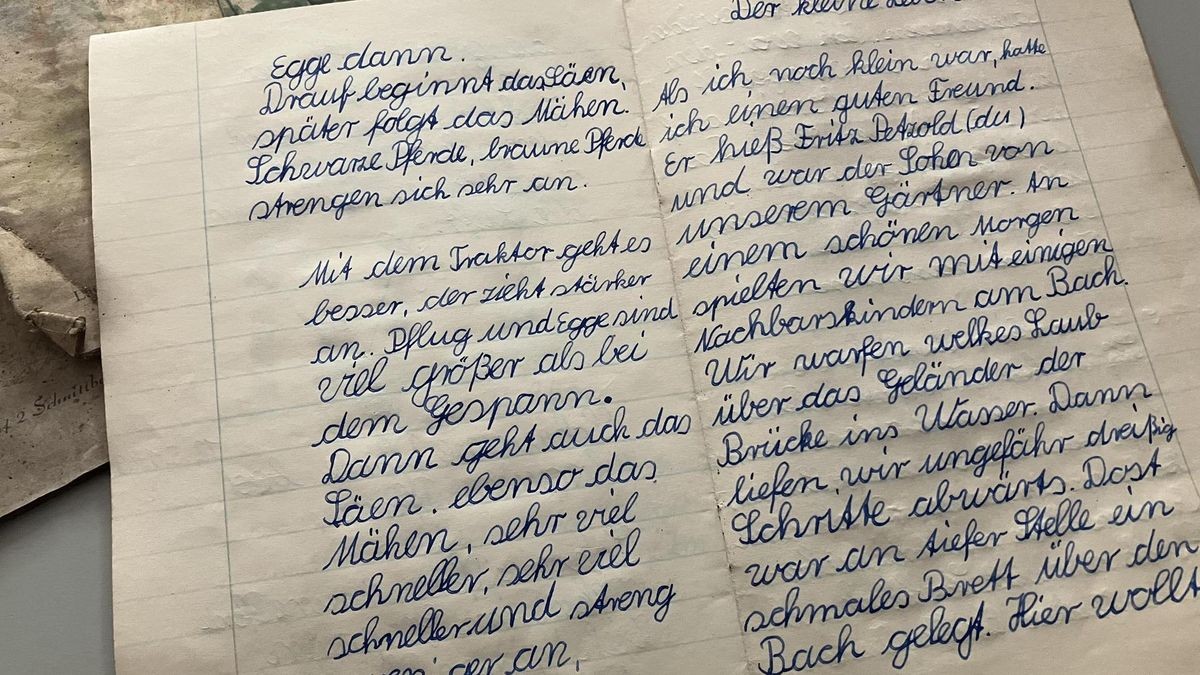 Egge dann.
Drauf beginnt das Säen,
später folgt das Mähen.
Schwarze Pferde, braune Pferde
strengen sich sehr an.
Mit dem Traktor geht es
besser, der zieht stärker
an. Pflug und Egge sind
viel größer als bei
dem Gespann.
Dann geht auch das
Säen, ebenso das
Mähen, sehr viel
schneller, sehr viel
schneller und streng
an,
Der kleine
Als ich noch klein war, hatte
ich einen guten Freund.
Er hieß Fritz Petzold (du)
und war der Sohen von
unserem Gärtner. An
einem schönen Morgen
spielten wir mit einigen
Nachbarskindern am Bach.
Wir warfen welkes Laub
über das Geländer der
Brücke ins Wasser. Dann
liefen wir ungefähr dreißig
Schritte abwärts. Dost
war an tiefer Stelle ein
schmales Brett über den
Bach gelegt. Hier wollt